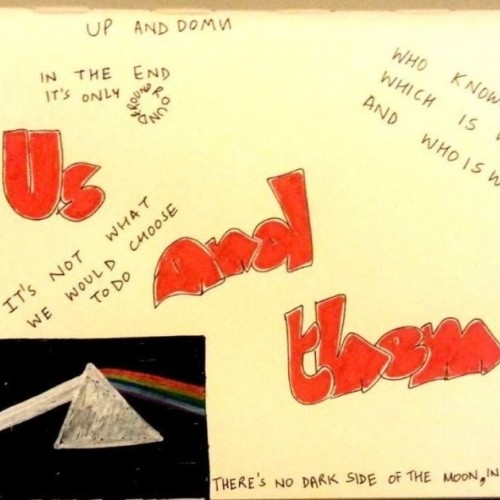 UP AND DOMN
IN THE END
IT'S ONLY ROUND ROUND
WHO KNOW
WHICH IS
AND WHO IS W
Us
and
them
IT'S NOT WHAT
WE WOULD CHOOSE
TO DO
THERE'S NO DARK SIDE OF THE MOON, IN